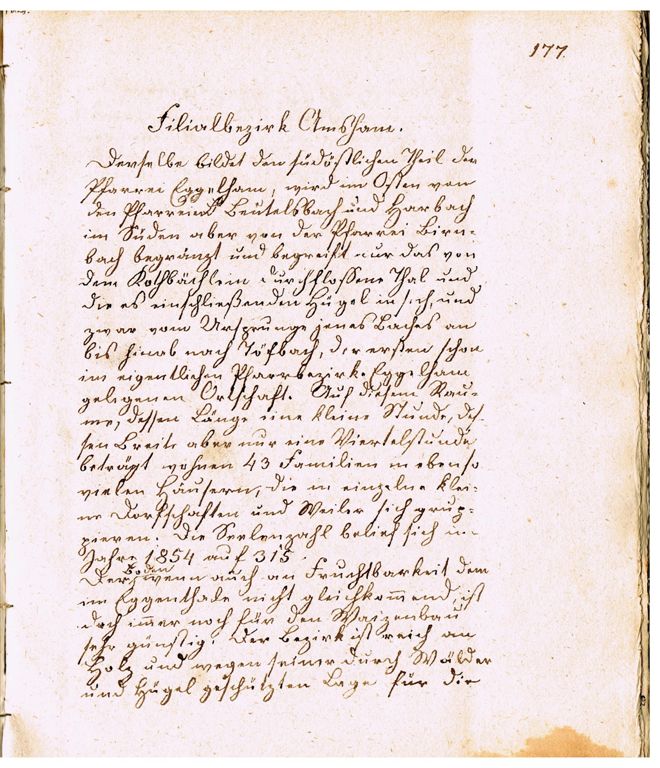 177.
Filialbezirk Amsham.
Derselbe bildet den südöstlichen Theil der
Pfarrei Eggelham, wird im Osten von
den Pfarreien Beutelsbach und Harbach
im Süden aber von der Pfarrei Birn-
bach begränzt und begreift nur das von
dem Kothbächlein durchflossene Thal und
die es einschließenden Hügel in sich, und
zwar vom Ursprunge jenes Baches an
bis hinab nach Töfbach, der ersten schon
im eigentlichen Pfarrbezirke Eggelham
gelegenen Ortschaft. Auf diesem Rau-
me, dessen Länge eine kleine Stunde, des-
sen Breite aber nur eine Viertelstunde
beträgt wohnen 43 Familien in ebenso
vielen Häusern, die in einzelne klei-
ne Dorfschaften und Weiler sich grup-
pieren. Die Seelenzahl belief sich im
Jahre 1854 auf 315.
Der Boden wenn auch an Fruchtbarkeit dem
im Eggenthale nicht gleichkommend ist
doch immer noch für den Waizenbau
sehr günstig. Der Bezirk ist reich an
Holz und wegen seiner durch Wälder
und Hügel geschützten Lage für die